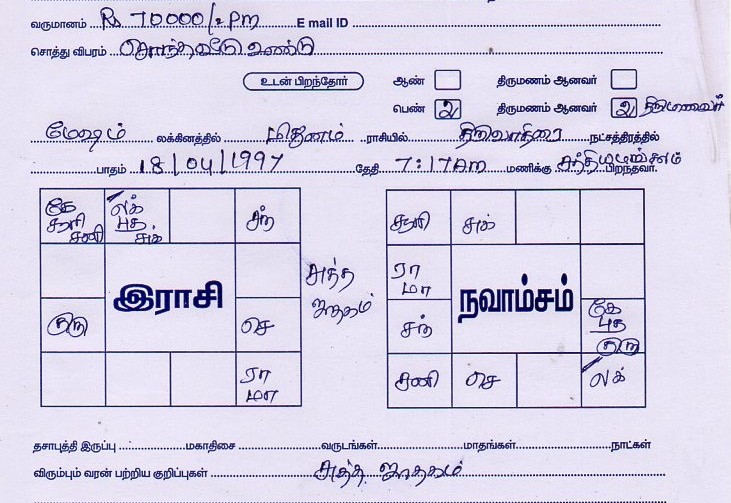 வருமானம் Rs 70000/- Pm E mail ID
சொத்து விபரம் சொந்தவீடு உண்டு
உடன் பிறந்தோர் ஆண் திருமணம் ஆனவர்
பெண் 2 திருமணம் ஆனவர் 2
மேஷம் லக்கினத்தில் மிதுனம் ராசியில் திருவாதிரை நட்சத்திரத்தில்
பாதம் 18/04/1997 தேதி 7:17 AM மணிக்கு பிறந்தவர்.
கே லக் சந்
சூரி புத
சனி சுக்
இராசி
குரு செ
ரா
மா
சுத்த
ஜாதகம்
சூரி சுக்
ரா
மா
நவாம்சம்
சந் கே
புத
குரு
சனி செ லக்
தசாபுத்தி இருப்பு மகாதிசை வருடங்கள் மாதங்கள் நாட்கள்
விரும்பும் வரன் பற்றிய குறிப்புகள் சுத்த ஜாதகம்